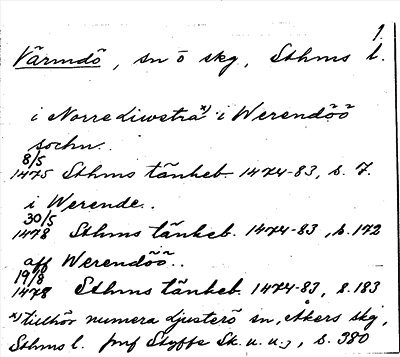 1.
Värmdö, sn ö skg, Sthms l.
i Norre Liwstra x) i Werendöö
sochn.
8/5
1475 Sthms tänkeb. 1474-83, s. 7.
i Werende..
30/5
1478 Sthms tänkeb. 1474-83, s. 172
aff Werendöö..
19/8
1478 Sthms tänkeb. 1474-83, s. 183
x) tillhör numera Djusterö sn, Åkers skg,
Sthms l. jmf Styffe Sk. u. u., s. 380